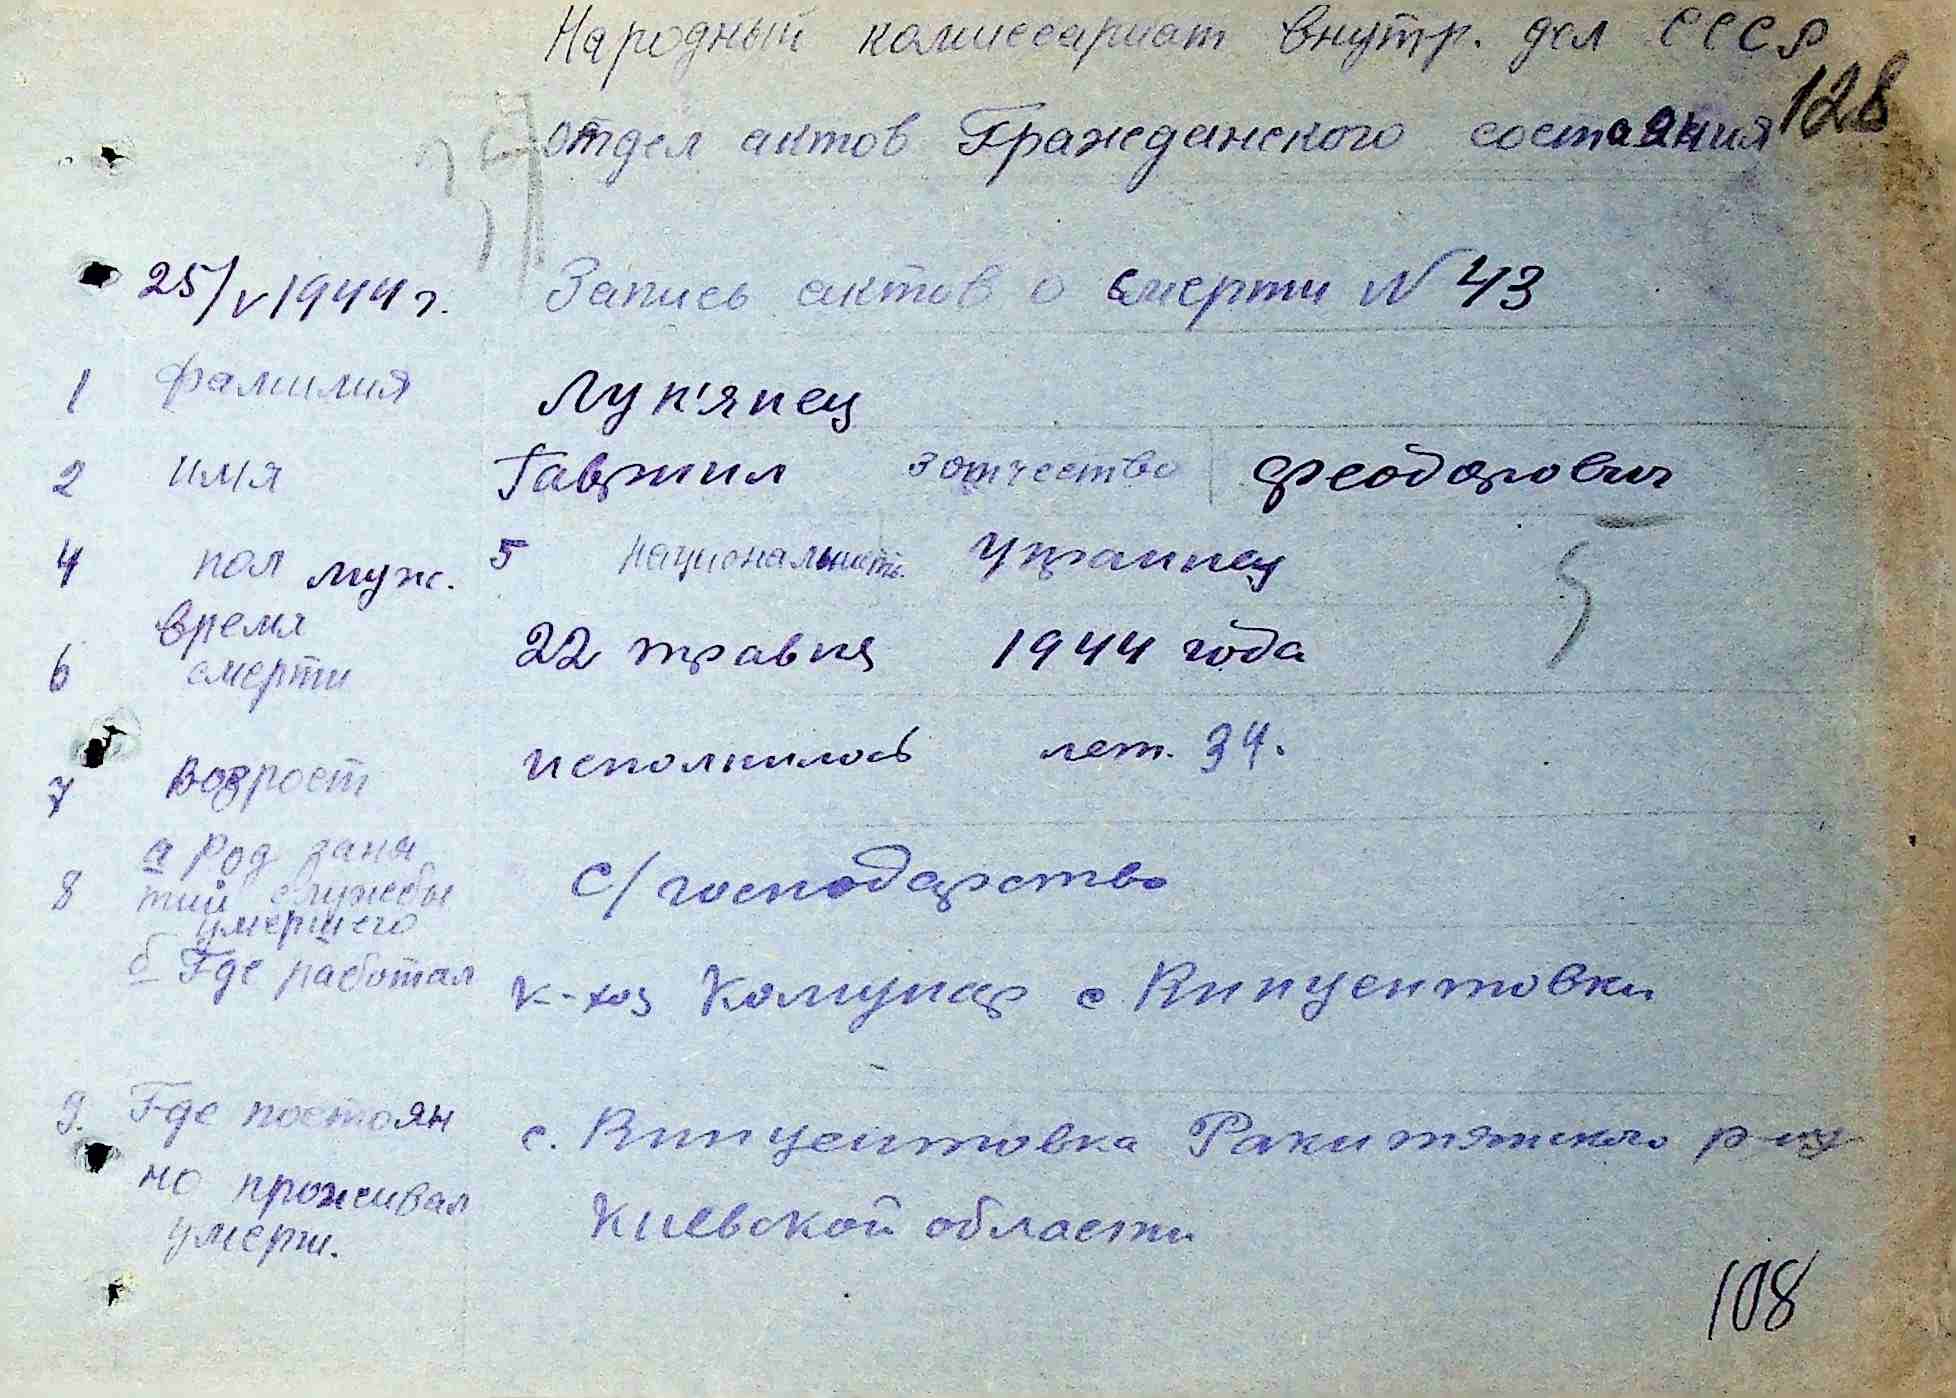 Народный комиссариат Внутр. дел СССР
128
отдел актов Гражданского состаяния
25/V 1944 г. Запись актов о смерти N 43
1 фамилия Лук'янец
2 имя Гаврил 3 отчество Феодорович
4 пол муж. 5 национальность Украинец
6 время смерти 22 травня 1944 года
7 Возрост исполнилось лет. 34.
8 а Род заня
тий службы С/господарство
умершего
б Где работал К-хоз Комунар с Винцентовки
9. Где постоян с. Винцентовка Ракитянского р-на
но проживал Киевской области
умерш.
108